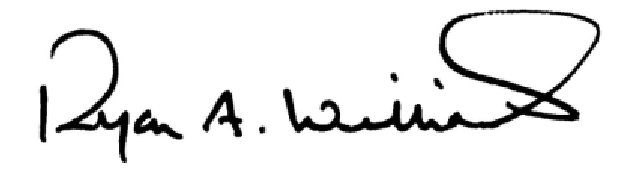 Ryan A. Williams